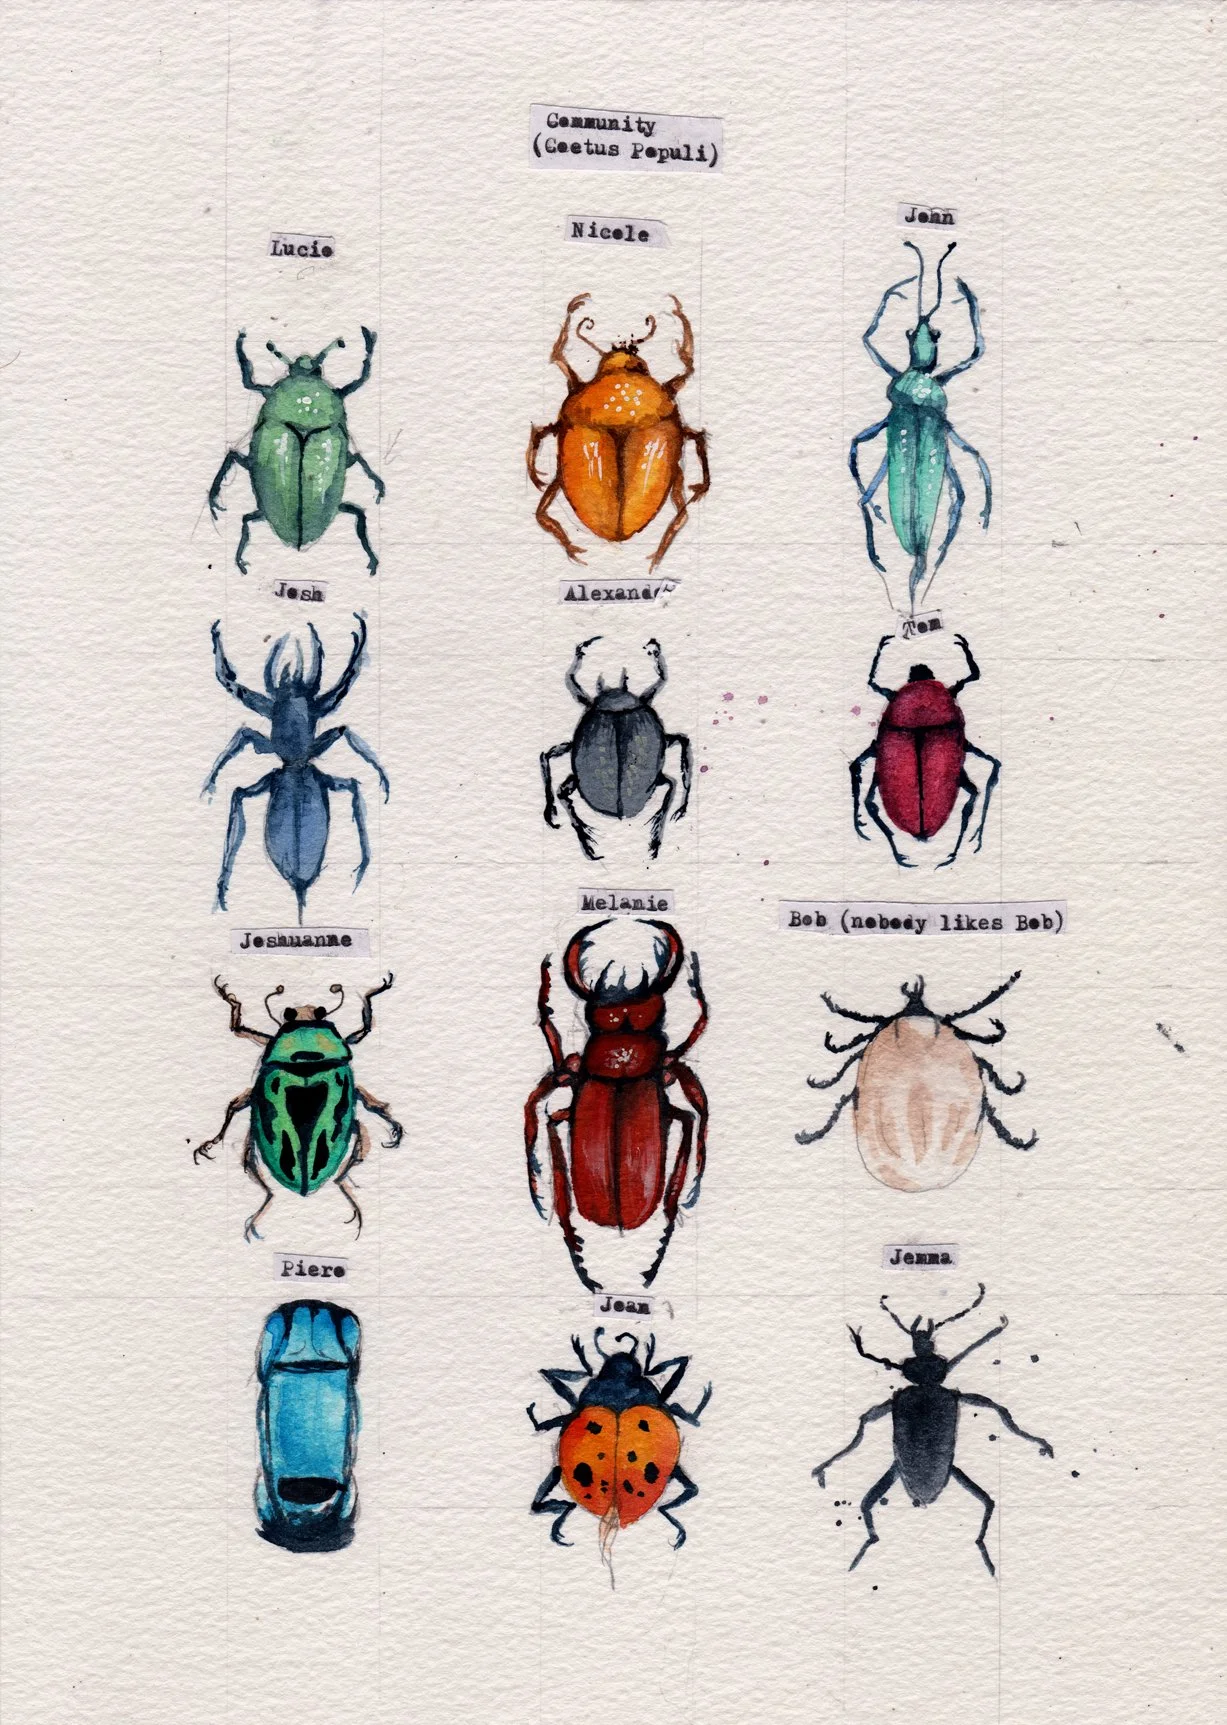 Community
(Coetus Populi)
Lucio
Nicole
John
Josh
Alexander
Tom
Joshuanne
Melanie
Bob (nobody likes Bob)
Piero
Joan
Jemma